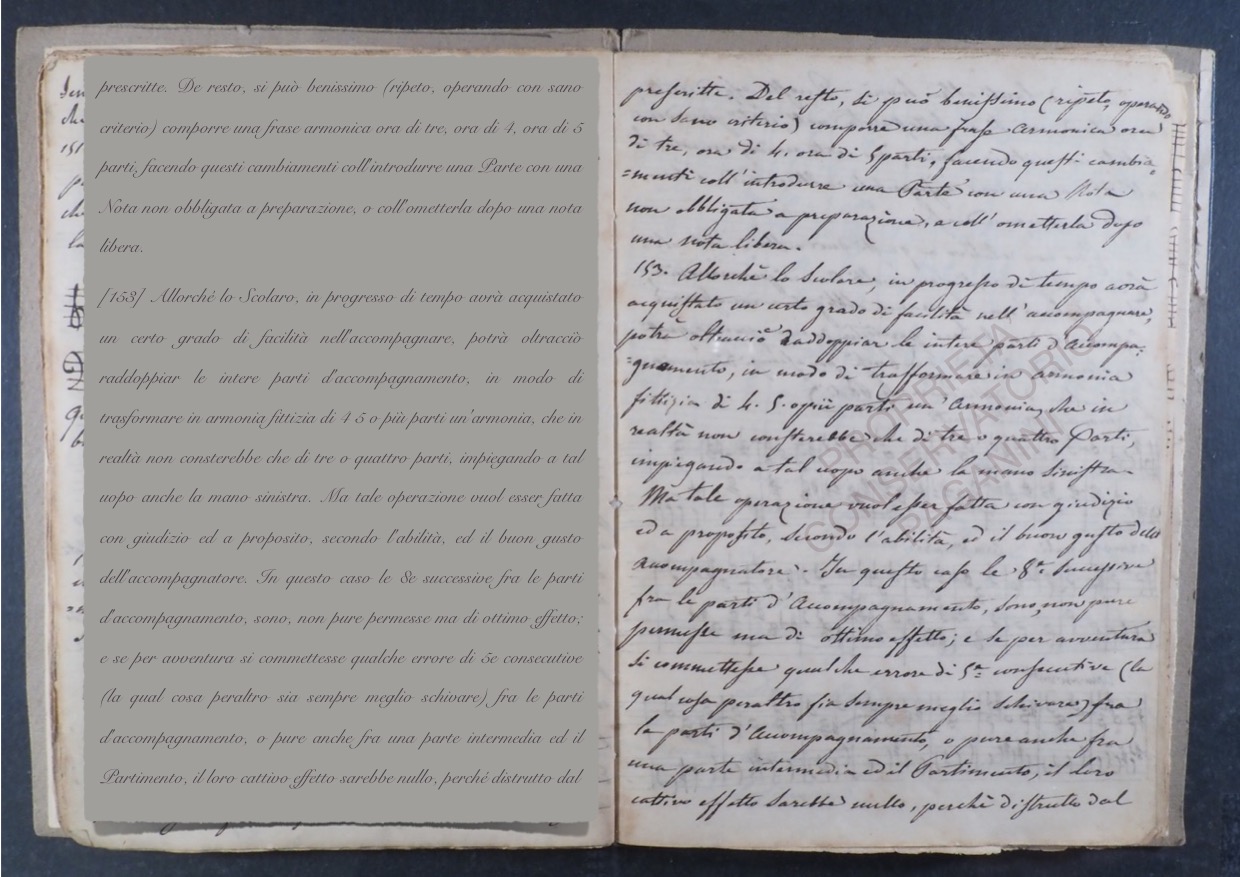 prescritte. De resto, si può benissimo (ripeto, operando con sano
criterio) comporre una frase armonica ora di tre, ora di 4, ora di 5
parti, facendo questi cambiamenti coll'introdurre una Parte con una
Nota non obbligata a preparazione, o coll'ometterla dopo una nota
libera.
[153] Allorché lo Scolaro, in progresso di tempo avrà acquistato
un certo grado di facilità nell'accompagnare, potrà oltracciò
raddoppiar le intere parti d'accompagnamento, in modo di
trasformare in armonia fittizia di 4 5 o più parti un'armonia, che in
realtà non consterebbe che di tre o quattro parti, impiegando a tal
uopo anche la mano sinistra. Ma tale operazione vuol esser fatta
con giudizio ed a proposito, secondo l'abilità, ed il buon gusto
dell'accompagnatore. In questo caso le 8e successive fra le parti
d'accompagnamento, sono, non pure permesse ma di ottimo effetto;
e se per avventura si commettesse qualche errore di 5e consecutive
(la qual cosa peraltro sia sempre meglio schivare) fra le parti
d'accompagnamento, o pure anche fra una parte intermedia ed il
Partimento, il loro cattivo effetto sarebbe nullo, perché distrutto dal
prescritte. Del resto, si può benissimo (ripeto, operando
con sano criterio) comporre una frase armonica ora
di tre, ora di 4. ora di 5 parti, facendo questi cambia=
=menti coll'introdurre una Parte con una Nota
non obbligata a preparazione, o coll'ometterla dopo
una nota libera.
153. Allorchè lo Scolare, in progresso di tempo avrà
acquistato un certo grado di facilità nell'accompagnare,
potrà oltracciò raddoppiar le intere parti d'Accompa=
=gnamento, in modo di trasformare in armonia
fittizia di 4. 5. o più parti un'Armonia, che in
realtà non consterebbe che di tre o quattro Parti,
impiegando a tal uopo anche la mano sinistra.
Ma tale operazione vuol esser fatta con giudizio
ed a proposito, secondo l'abilità, ed il buon gusto dell'
Accompagnatore. In questo caso le 8e successive
fra le parti d'Accompagnamento, sono, non pure
permesse ma di ottimo effetto; e se per avventura
si commettesse qualche errore di 5e consecutive (la
qual cosa peraltro sia sempre meglio schivare) fra
le parti d'Accompagnamento, o pure anche fra
una parte intermedia ed il Partimento, il loro
cattivo effetto sarebbe nullo, perchè distrutto dal
PROPRIETÀ
CONSERVATORIO
PAGANINI